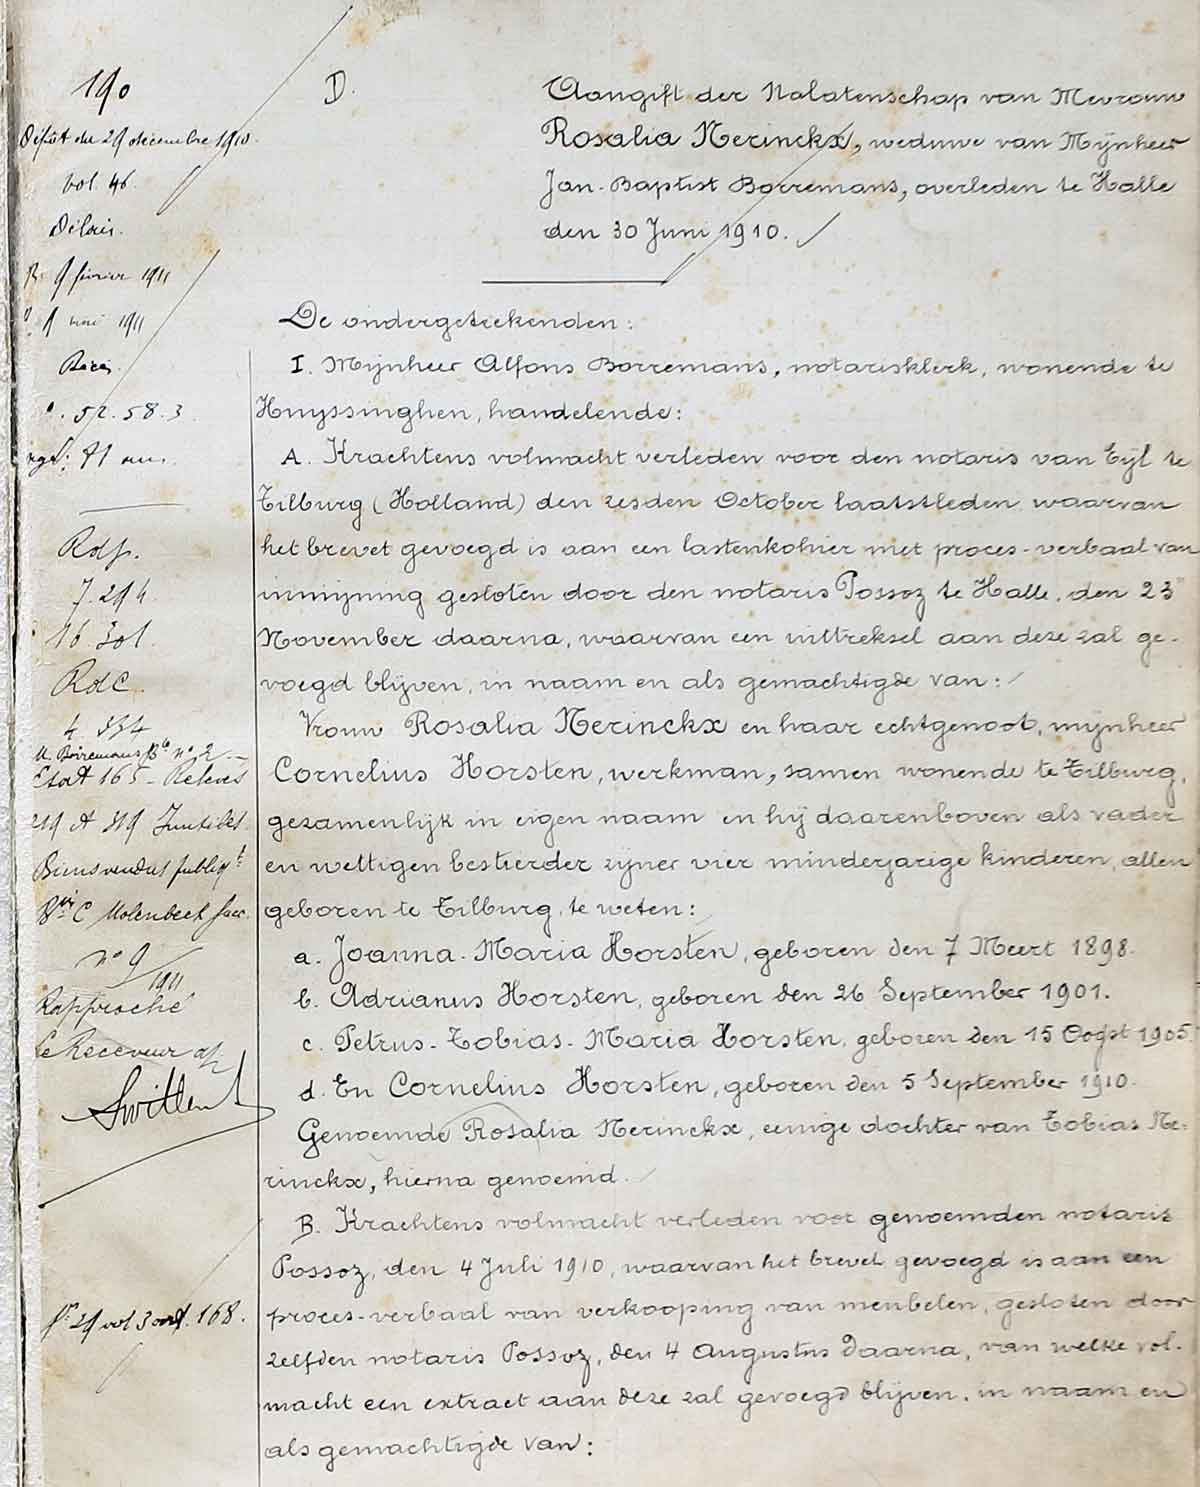 190
Dépôt du 29 décembre 1910.
Vol. 46.
Délais.
9 février 1911
9 mai 1911
52.58.3
71 ans.
Rdp.
7.294.
16.301.
RdC.
4.834
Borremans n° 2
Etat 165 - Relevés
219 et 319 Inutiles
Biens vendus publiqt
C Molenbeek
n° 9
1911
Rapproché
Le Receveur
29 vol 3 168.
D.
Aangift der Nalatenschap van Mevrouw
Rosalia Nerinckx, weduwe van Mijnheer
Jan-Baptist Borremans, overleden te Halle
den 30 Juni 1910.
De ondergeteekenden:
I. Mijnheer Alfons Borremans, notarisklerk, wonende te
Huyssinghen, handelende:
A. Krachtens volmacht verleden voor den notaris van Eijl te
Tilburg (Holland) den zesden October laatstleden, waarvan
het brevet gevoegd is aan een lastenkohier met proces-verbaal van
inmijning gesloten door den notaris Possoz te Halle, den 23n
November daarna, waarvan een uittreksel aan deze zal ge-
voegd blijven, in naam en als gemachtigde van:
Vrouw Rosalia Nerinckx en haar echtgenoot, mijnheer
Cornelius Horsten, werkman, samen wonende te Tilburg,
gezamenlijk in eigen naam en hij daarenboven als vader
en wettigen bestierder zijner vier minderjarige kinderen, allen
geboren te Tilburg, te weten:
a. Joanna-Maria Horsten, geboren den 7 Meert 1898.
b. Adrianus Horsten, geboren den 26 September 1901.
c. Petrus-Tobias-Maria Horsten, geboren den 15 Oogst 1905.
d. En Cornelius Horsten, geboren den 5 September 1910.
Genoemde Rosalia Nerinckx, eenige dochter van Tobias Ne-
rinckx, hierna genoemd.
B. Krachtens volmacht verleden voor genoemden notaris
Possoz, den 4 Juli 1910, waarvan het brevet gevoegd is aan een
proces-verbaal van verkooping van meubelen, gesloten door
zelfden notaris Possoz, den 4 Augustus daarna, van welke vol-
macht een extract aan deze zal gevoegd blijven, in naam en
als gemachtigde van: